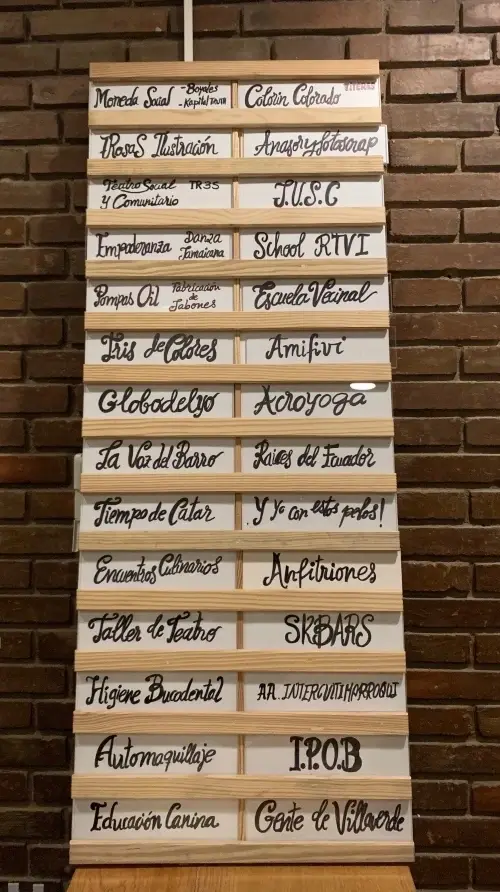 Moneda Social - Boyales
- Kapital Truth
Colorin Colorado
TITERES
TRosaS Ilustración
Anasor y fotoscrap
Teatro Social TR3S
y Comunitario
J.U.S.C
Empoderanza Danza
Jamaicana
School RTVI
Pompas Oil Fabricación
de
Jabones
Escuela Vecinal
Iris de Colores
Amifivi
Globodelyo
Acroyoga
La Voz del Barro
Raices del Ecuador
Tiempo de Catar
Y yo con estos pelos!
Encuentros Culinarios
Anfitriones
Taller de Teatro
SKBARS
Higiene Bucodental
AA.
Automaquillaje
I.P.O.B
Educación Canina
Gente de Villaverde